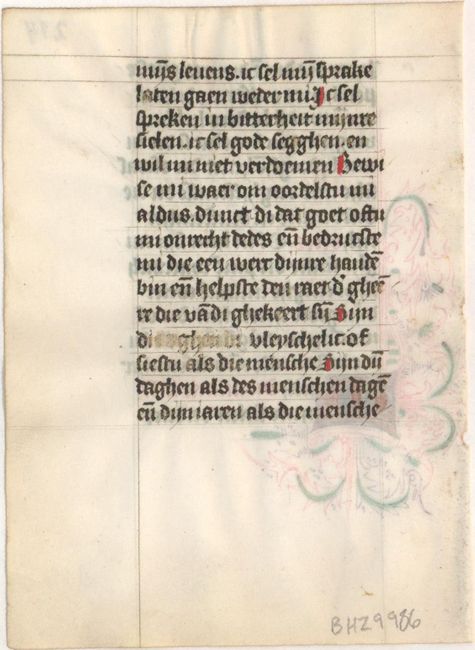 mijs leuens. ic sel mijn sprake
laten gaen weder mi. Ic sel
spreken in bitterheit mijnre
sielen. ic sel gode segghen. en
wil mi niet verdoemen Bewi
se mi waer om oordelstu mi
aldus. dinct di dat goet oftu
mi onrecht dedes eñ bedructste
mi die een werc dijnre handē
bin eñ helpste den raet d' ghee
re die vā di ghekeert sijn Sijn
di oghen vleyschelic. of
siestu als die mensche Sijn dijn
daghen als des menschen dagē
eñ dijn iaren als die mensche
BHZ9986